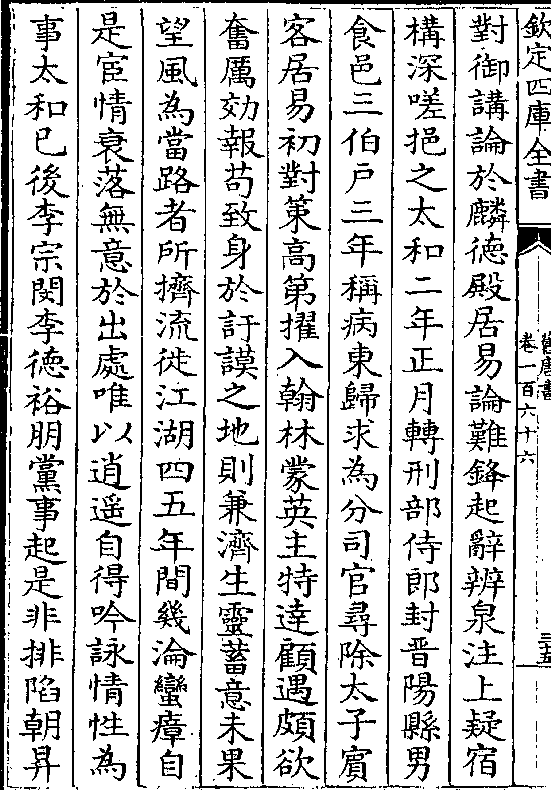 欽定四庫全書
舊唐書
卷一百六十六
三十五
對御講論於麟徳殿居易論難鋒起辭辨泉注上疑宿
構深嗟挹之太和二年正月轉刑部侍郎封晋陽縣男
食邑三伯户三年稱病東歸求為分司官尋除太子賔
客居易初對䇿高第擢入翰林蒙英主特逹顧遇頗欲
奮厲効報苟致身於訏謨之地則兼濟生靈蓄意未果
望風為當路者所擠流徙江湖四五年間幾淪蠻瘴自
是宦情衰落無意於出處唯以逍遥自得吟詠情性為
事太和已後李宗閔李徳裕朋黨事起是非排陷朝昇